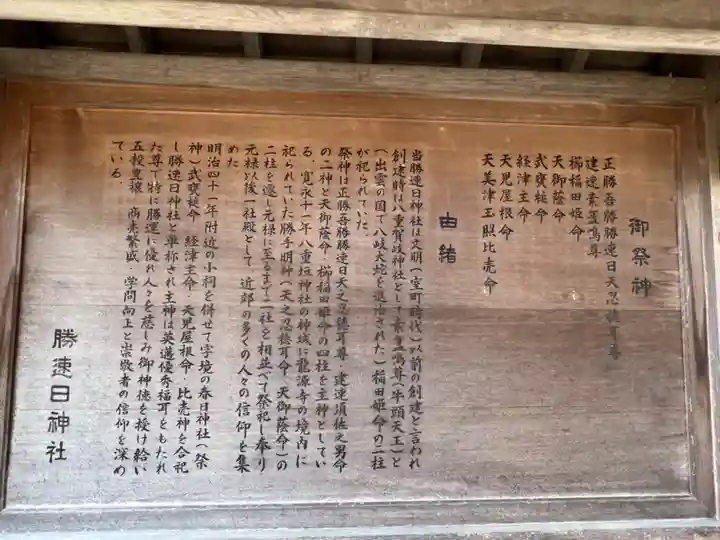 御祭神
正勝吾勝勝速日天忍穂耳尊
建速素盞嗚尊
櫛稲田姫命
天御蔭命
武甕槌命
経津主命
天児屋根命
天美津玉照比売命
由緒
当勝速日神社は文明(室町時代)以前の創建と言われ
創建時は八重賀岐神社として素盞嗚尊(牛頭天王)と
(出雲の国で八岐大蛇を退治された)稲田姫命の二柱
が祀られていた。
祭神は正勝吾勝勝速日天之忍穂耳尊・建速須佐之男命
の二神と天御蔭命・櫛稲田姫命の四柱を主神としてい
る。寛永十一年八重垣神社の神域に龍源寺の境内に
祀られていた勝手明神(天之忍穂耳命・天御蔭命)の
二柱を遷し元禄に至るまで二社を相並べて祭祀し奉り
元禄以後一社殿として近郷の多くの人々の信仰を集
めた
明治四十一年附近の小祠を併せて字境の春日神社(祭
神)武甕槌命・経津主命・天児屋根命・比売神を合祀
し勝速日神社と単称され主神は英邁優秀福耳をもたれ
た尊で特に勝運に優れ人々を慈しみ御神徳を授け給い
五穀豊穣・商売繁盛・学問向上と崇敬者の信仰を深め
ている。
勝速日神社